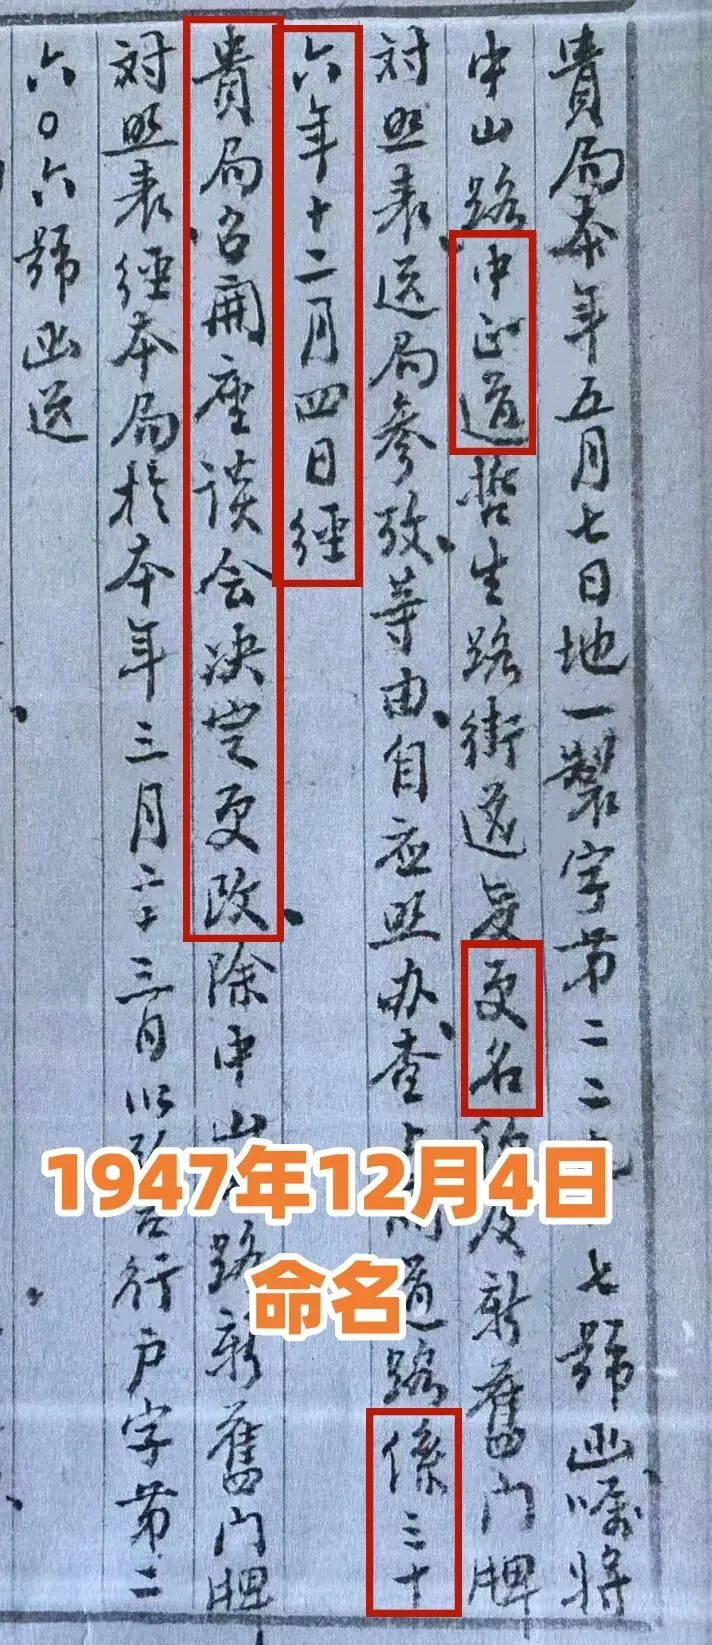 貴局本年五月七日地一製字第二二九七號函囑將
中山路中正道哲生路街道更名及新舊门牌
对照表送局參攷等由自应照办查道路係三十
六年十二月四日經
貴局召開座谈会决定更改除中山路新舊门牌
对照表經本局於本年三月二十三日以行户字苐二
六〇六號函送
1947年12月4日
命名